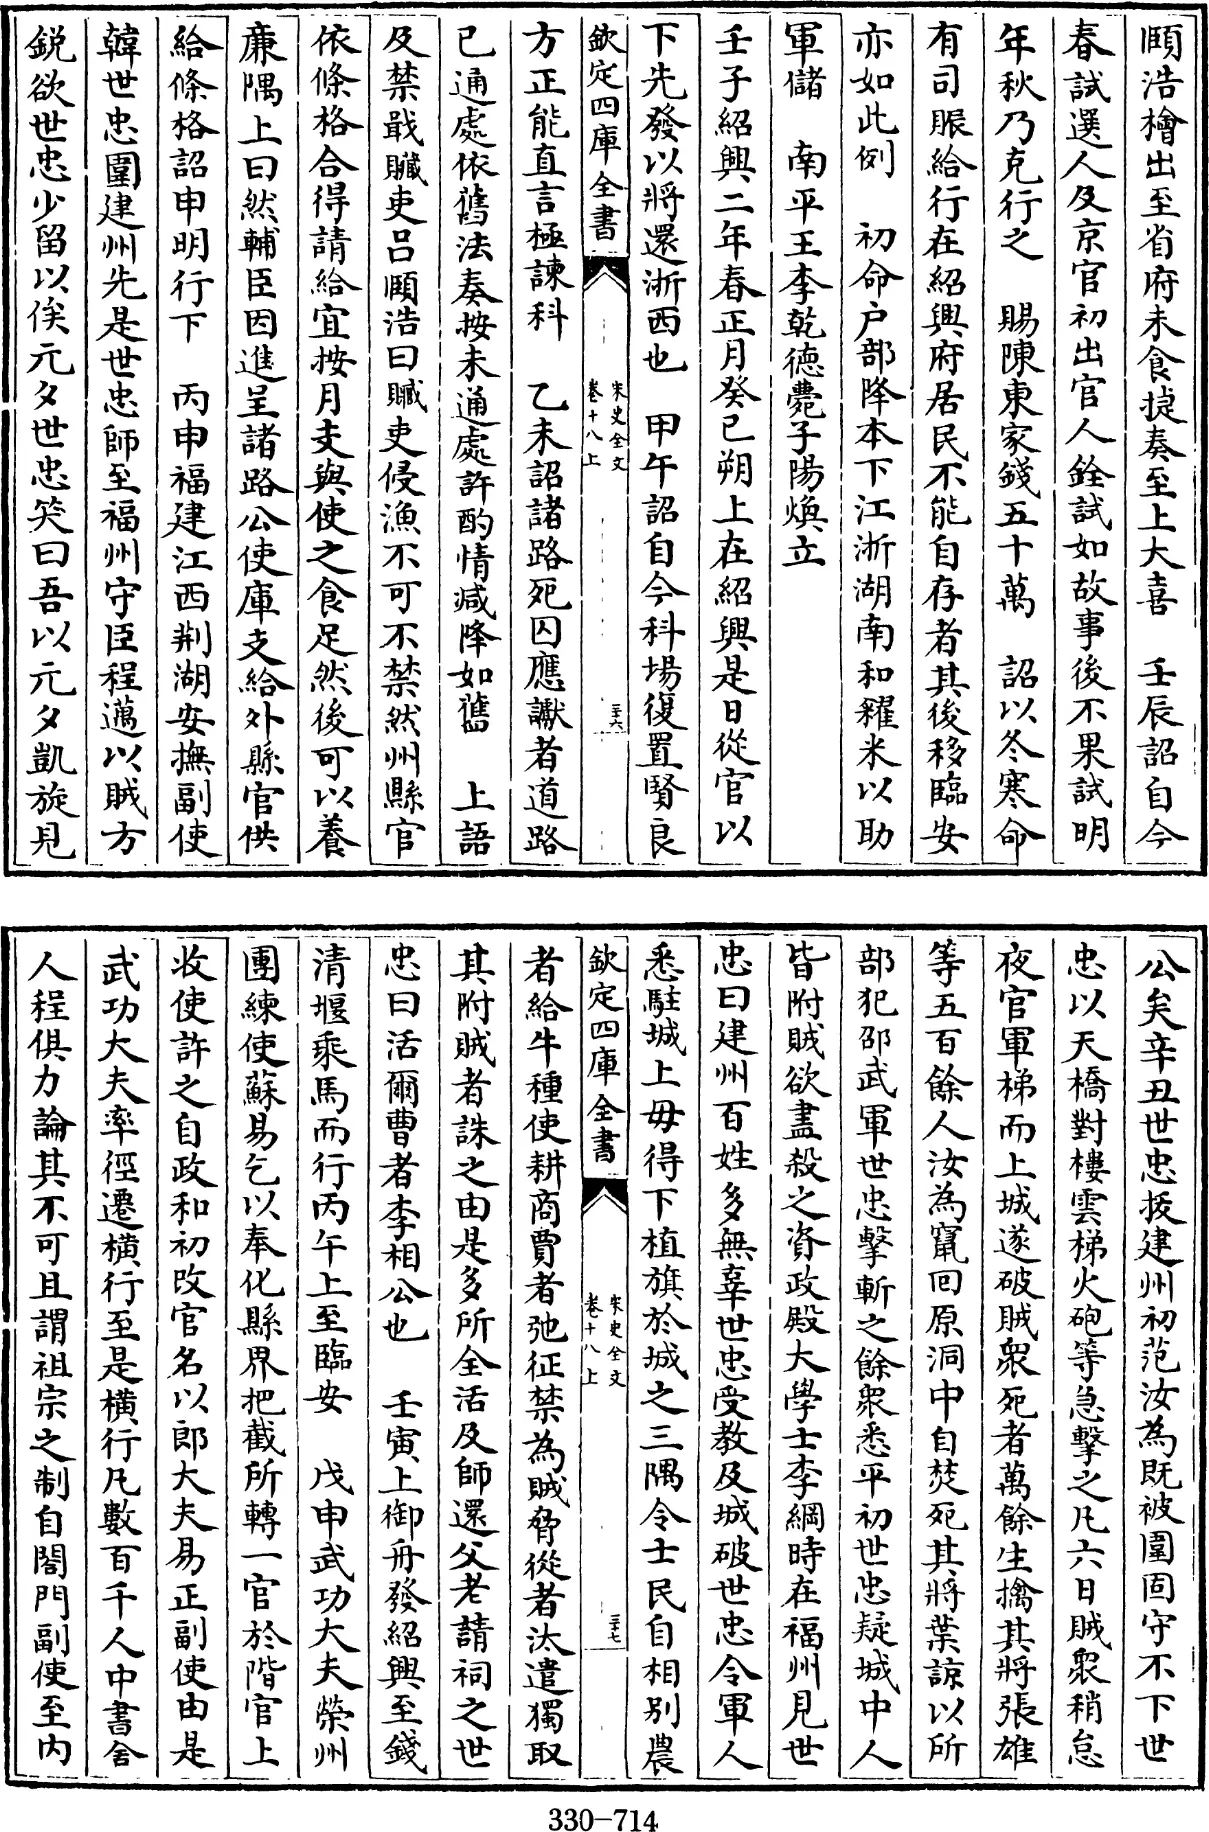 頤浩檜出至省府未食㨗奏至上大喜　壬辰詔自今
春試選人及京官初出官人銓試如故事後不果試明
年秋乃克行之　賜陳東家錢五十萬　詔以冬寒命
有司賑給行在紹興府居民不能自存者其後移臨安
亦如此例　初命户部降本下江浙湖南和糴米以助
軍儲　南平王李乾德薨子陽煥立
壬子紹興二年春正月癸巳朔上在紹興是日從官以
下先發以將還浙西也　甲午詔自今科場復置賢良
欽定四庫全書
宋史全文
卷十八上
三十六
方正能直言極諫科　乙未詔諸路死囚應讞者道路
已通處依舊法奏按未通處許酌情减降如舊　上語
及禁戢贓吏吕頤浩曰贓吏侵漁不可不禁然州縣官
依條格合得請給宜按月支與使之食足然後可以養
廉隅上曰然輔臣因進呈諸路公使庫支給外縣官供
給條格詔申明行下　丙申福建江西荆湖安撫副使
韓世忠圍建州先是世忠師至福州守臣程邁以賊方
鋭欲世忠少留以俟元夕世忠笑曰吾以元夕凱旋見
公矣辛丑世忠拔建州初范汝為既被圍固守不下世
忠以天橋對樓雲梯火砲等急擊之凡六日賊衆稍怠
夜官軍梯而上城遂破賊衆死者萬餘生擒其將張雄
等五百餘人汝為竄回原洞中自焚死其將葉諒以所
部犯邵武軍世忠擊斬之餘衆悉平初世忠疑城中人
皆附賊欲盡殺之資政殿大學士李綱時在福州見世
忠曰建州百姓多無辜世忠受教及城破世忠令軍人
悉駐城上毋得下植旗於城之三隅令士民自相别農
欽定四庫全書
宋史全文
卷十八上
三十七
者給牛種使耕商賈者弛征禁為賊脅從者汰遣獨取
其附賊者誅之由是多所全活及師還父老請祠之世
忠曰活爾曹者李相公也　壬寅上御舟發紹興至錢
清堰乘馬而行丙午上至臨安　戊申武功大夫榮州
團練使蘇易乞以奉化縣界把截所轉一官於階官上
收使許之自政和初改官名以郎大夫易正副使由是
武功大夫率徑遷横行至是横行凡數百千人中書舍
人程俱力論其不可且謂祖宗之制自閤門副使至内
330-714